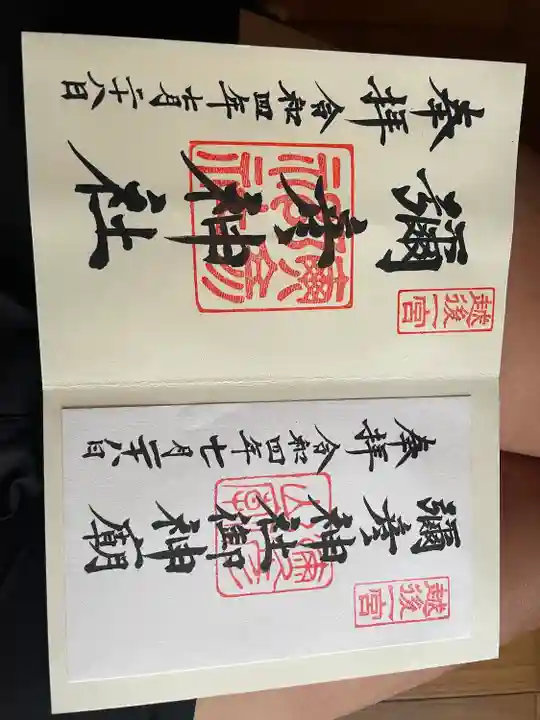 奉拝
令和四年七月二十八日
彌彦神社
越後一宮
奉拝
令和四年七月二十八日
彌彦神社御神廟
越後一宮